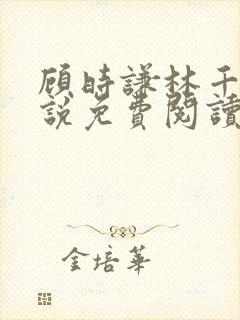 顾時謙林千
說免費閱讀
金培華